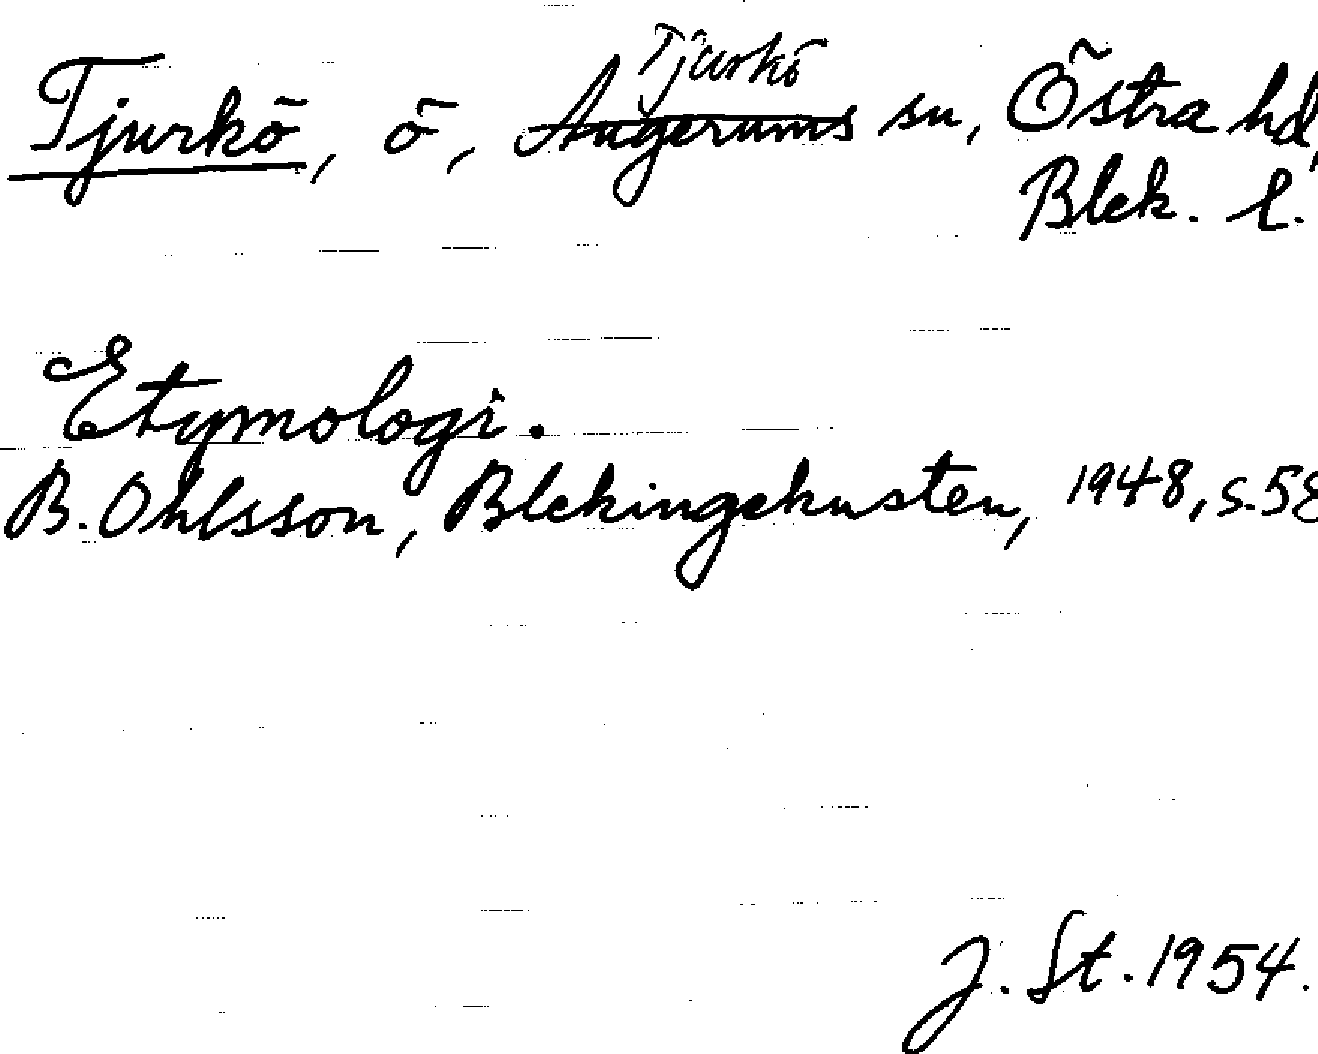 Tjurkö, ö, Augerums sn, Östra hd,
Tjurkö
Blek. l.
Etymologi.
B. Ohlsson, Blekingekusten, 1948, s. 58
J. St. 1954.